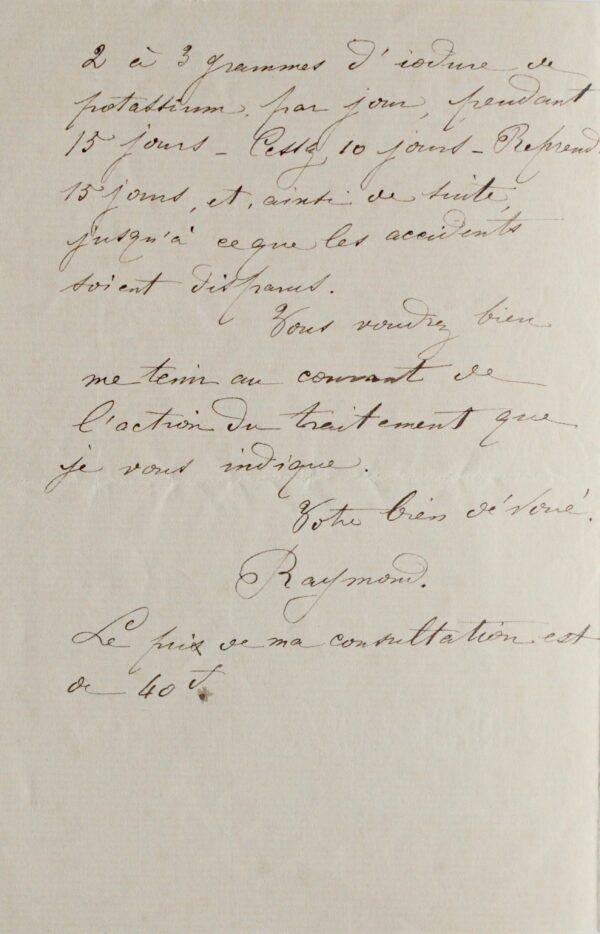 2 à 3 grammes d'iodure de
potassium, par jour, pendant
15 jours – Cessez 10 jours – Reprend.
15 jours, et, ainsi de suite,
jusqu'à ce que les accidents
soient disparus.
Vous voudrez bien
me tenir au courant de
l'action du traitement que
je vous indique.
Votre bien dévoué.
Raymond.
Le prix de ma consultation est
de 40 f.